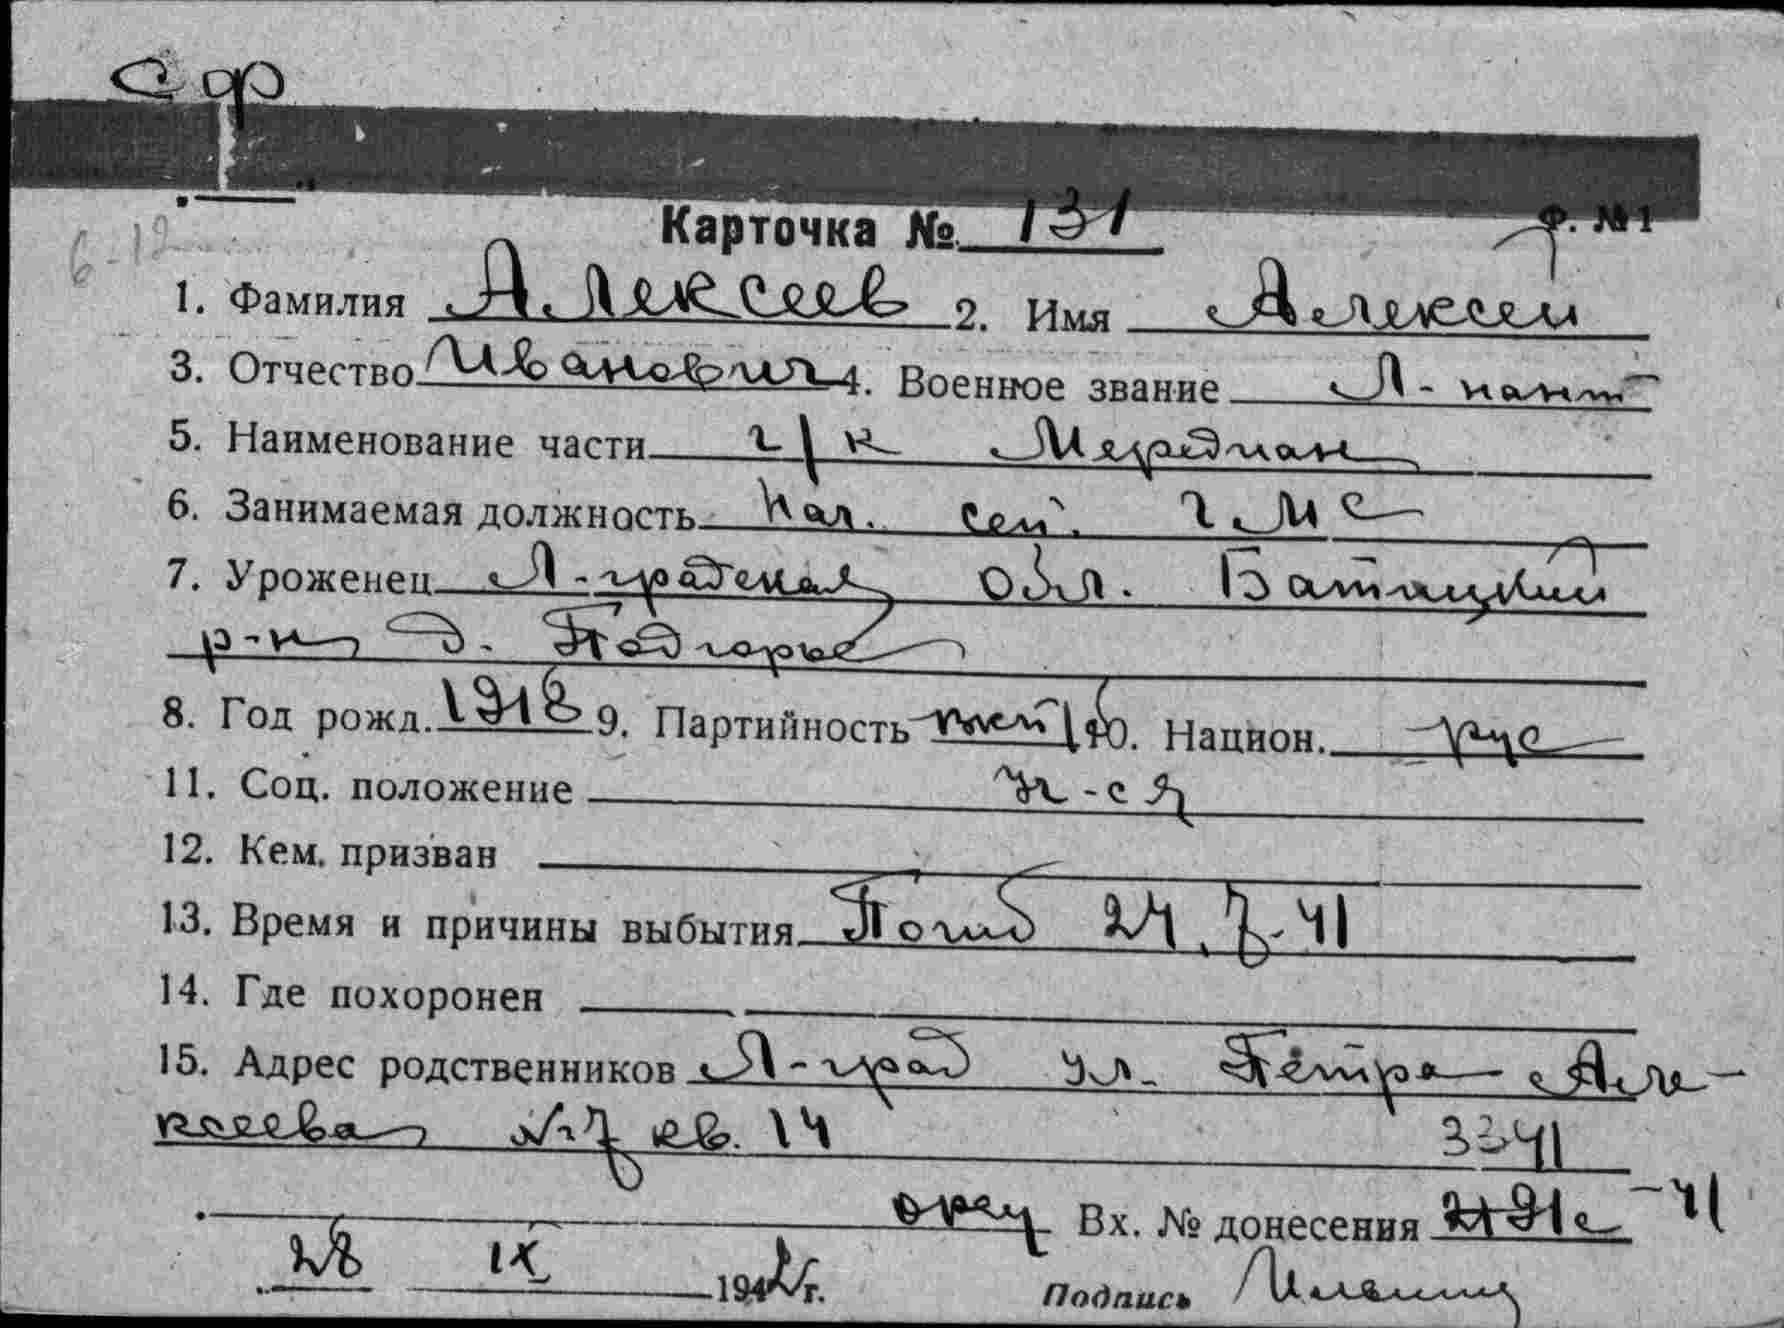 Ф. №1
Карточка № 131
6-12
1. Фамилия Алексеев 2. Имя Алексей
3. Отчество Иванович 4. Военное звание Л-нант
5. Наименование части г/к Меридиан
6. Занимаемая должность Нач. сек. ГМС
7. Уроженец Л-градская обл. Батецкий
р-н д. Подгорье
8. Год рожд. 1918 9. Партийность 10. Национ. рус
11. Соц. положение
12. Кем призван
13. Время и причины выбытия Погиб 24.7.41
14. Где похоронен
15. Адрес родственников Л-град ул. Петра Але-
ксеева №7 кв. 14
3341
Вх. № донесения -41
28 IX 1942г. Подпись